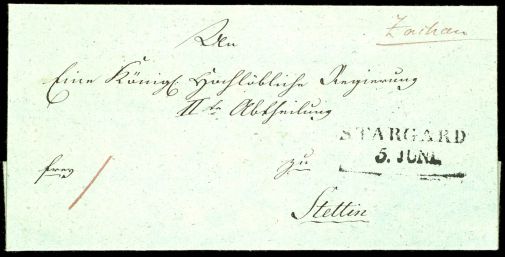 Zachan
An
Eine Königl. Hochlöbliche Regierung
IIte Abtheilung
STARGARD
5. JUNI.
frey
zu
Stettin